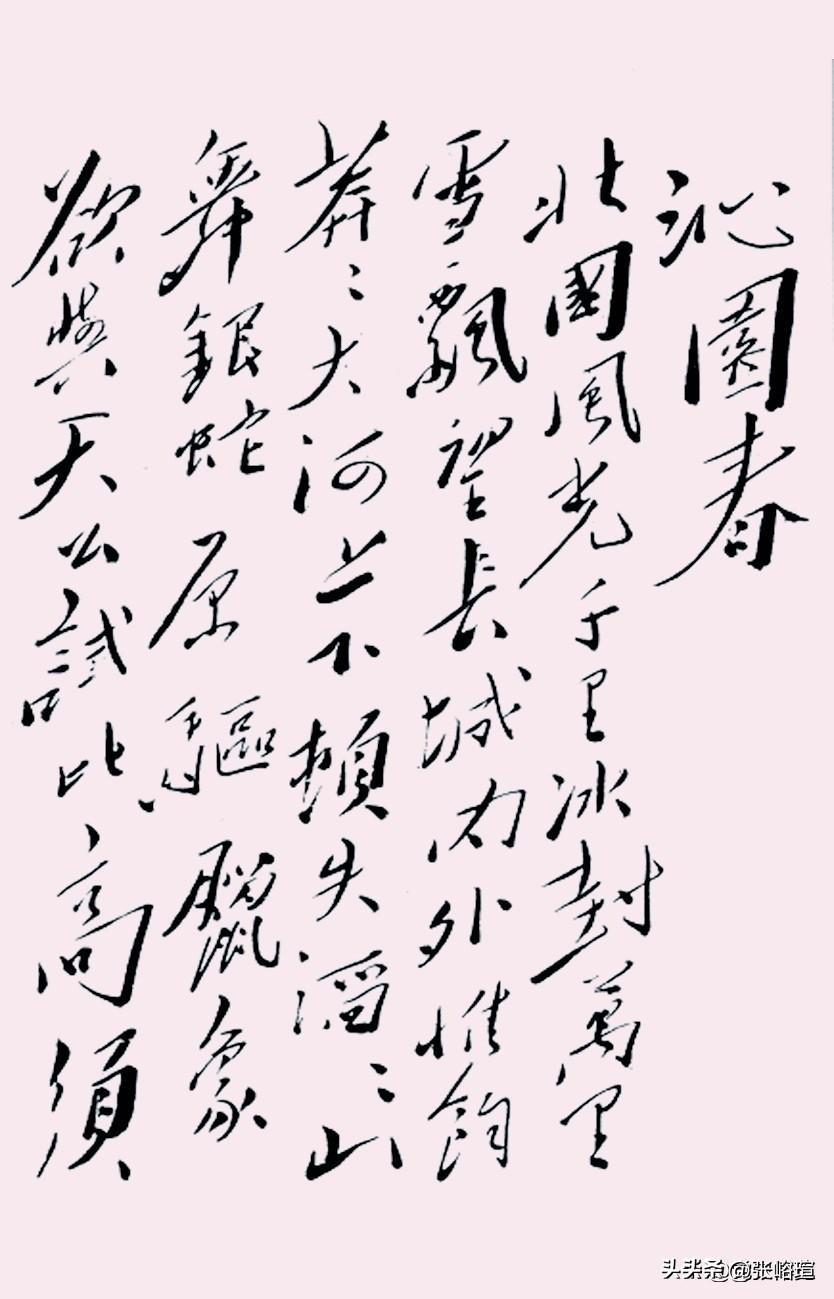 沁園春
北國風光千里冰封萬里
雪飄望長城內外惟餘
莽〻大河上下頓失滔〻山
舞銀蛇原驅臘象
欲與天公試比高須
头条@张峪瑄